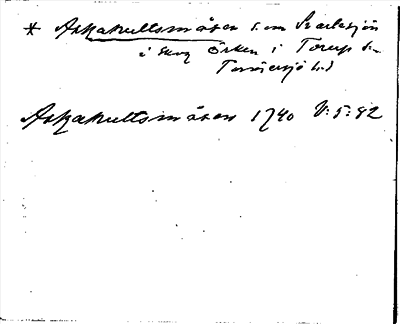 * Askakultsmåsen s. om Svartesjön
i skog Örken i Torup s-
Tönnersjö hd
Askakultsmåsen 1740 V: 5: 92